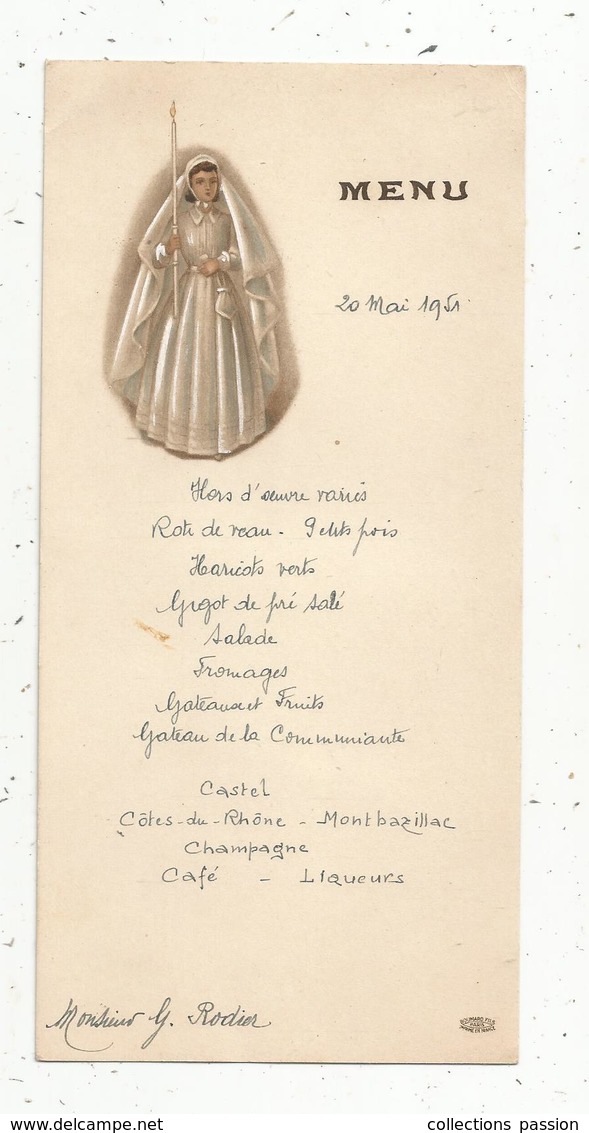 MENU
20 Mai 1951
Hors d'oeuvre variés
Roti de veau - Petits pois
Haricots verts
Gigot de pré salé
Salade
Fromages
Gateaux et Fruits
Gateau de la Communiante
Castel
Côtes-du-Rhône - Montbazillac
Champagne
Café - Liqueurs
Monsieur G. Rodier
BOUMARD FILS
PARIS
collections passion